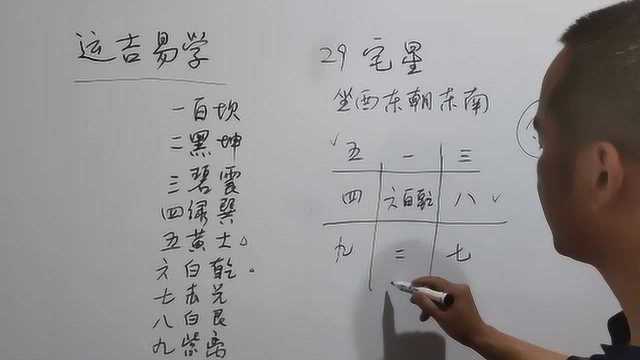 运吉易学
一白坎
二黑坤
三碧震
四绿巽
五黄土
六白乾
七赤兑
八白艮
九紫离
29宅星
坐西东朝东南
五 一 三
四 六白乾 八
九 二 七